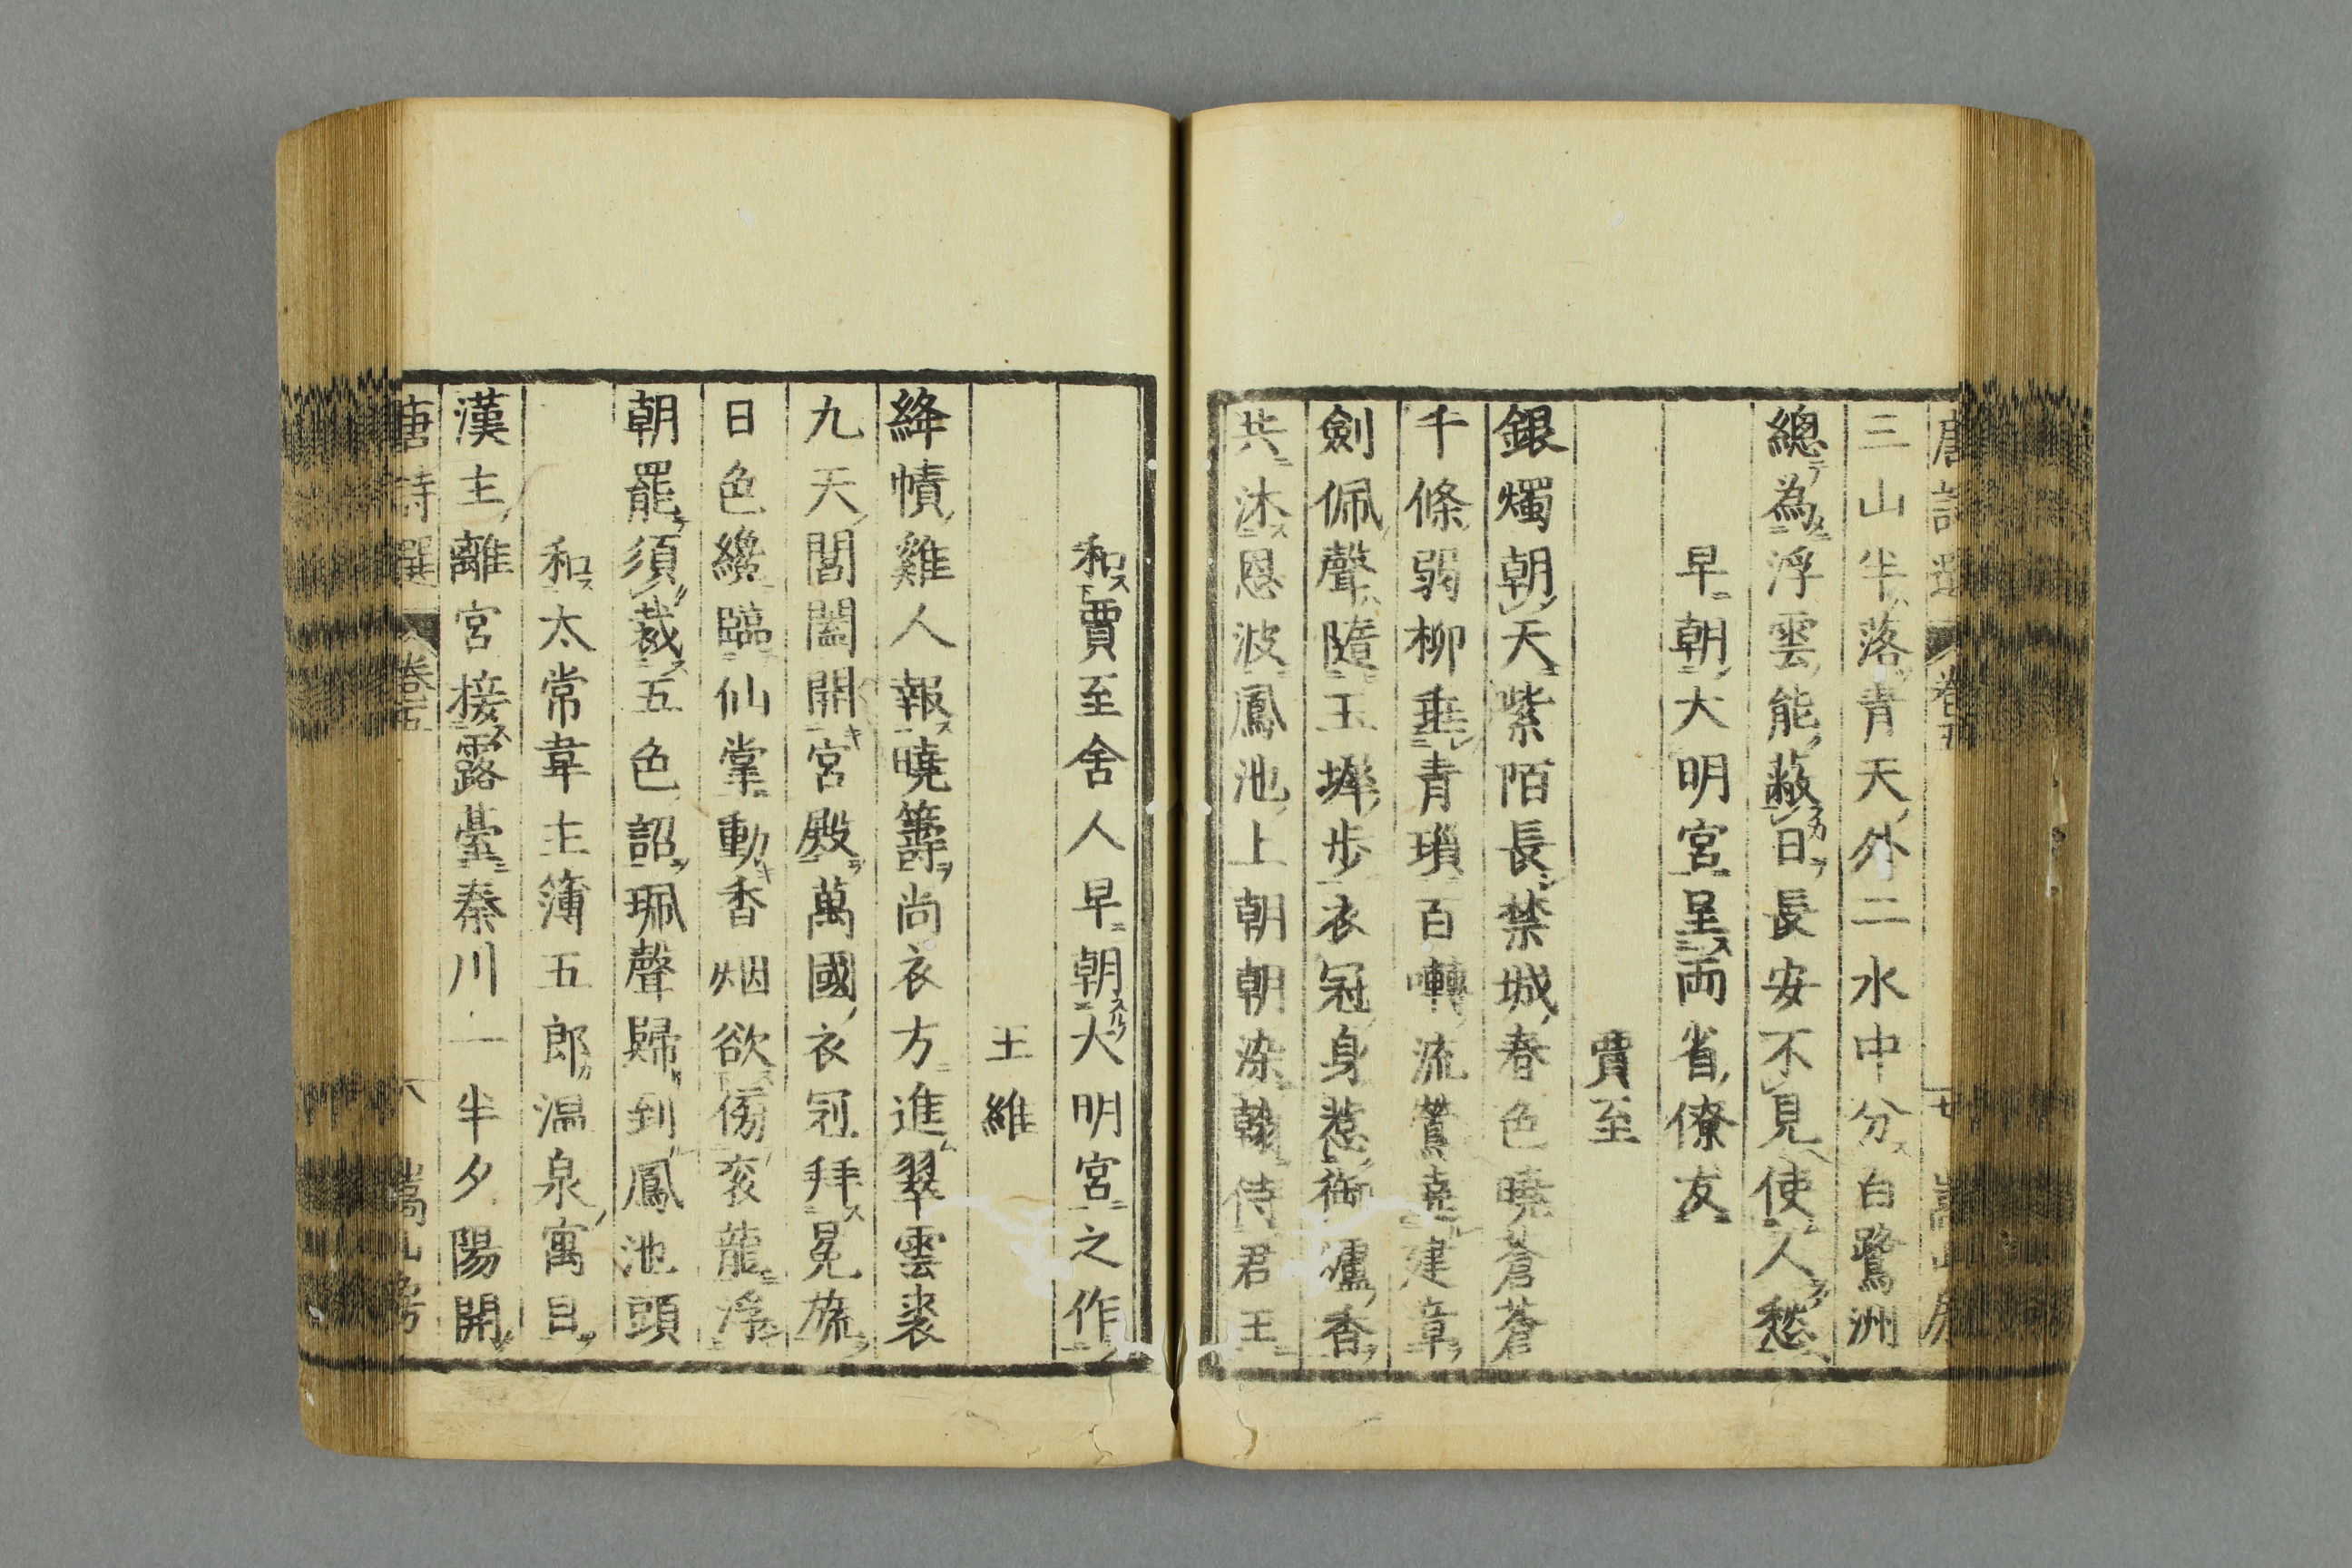 唐詩選 卷五 七 嵩山房
三山半落青天外二水中分白鷺洲
總為浮雲能蔽日長安不見使人愁
早朝大明宮呈兩省僚友
賈至
銀燭朝天紫陌長禁城春色曉蒼蒼
千條弱柳垂青瑣百囀流鶯遶建章
劍佩聲隨玉墀步衣冠身惹御爐香
共沐恩波鳳池上朝朝染翰侍君王
和賈至舍人早朝大明宮之作
王維
絳幘雞人報曉籌尚衣方進翠雲裘
九天閶闔開宮殿萬國衣冠拜冕旒
日色纔臨仙掌動香烟欲傍衮龍浮
朝罷須裁五色詔珮聲歸到鳳池頭
和太常韋主簿五郎溫泉寓目
漢主離宮接露臺秦川一半夕陽開
唐詩選 卷五 八 嵩山房